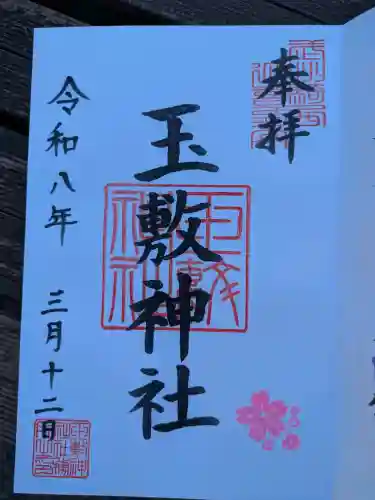 奉拝
玉敷神社
令和八年 三月十二日